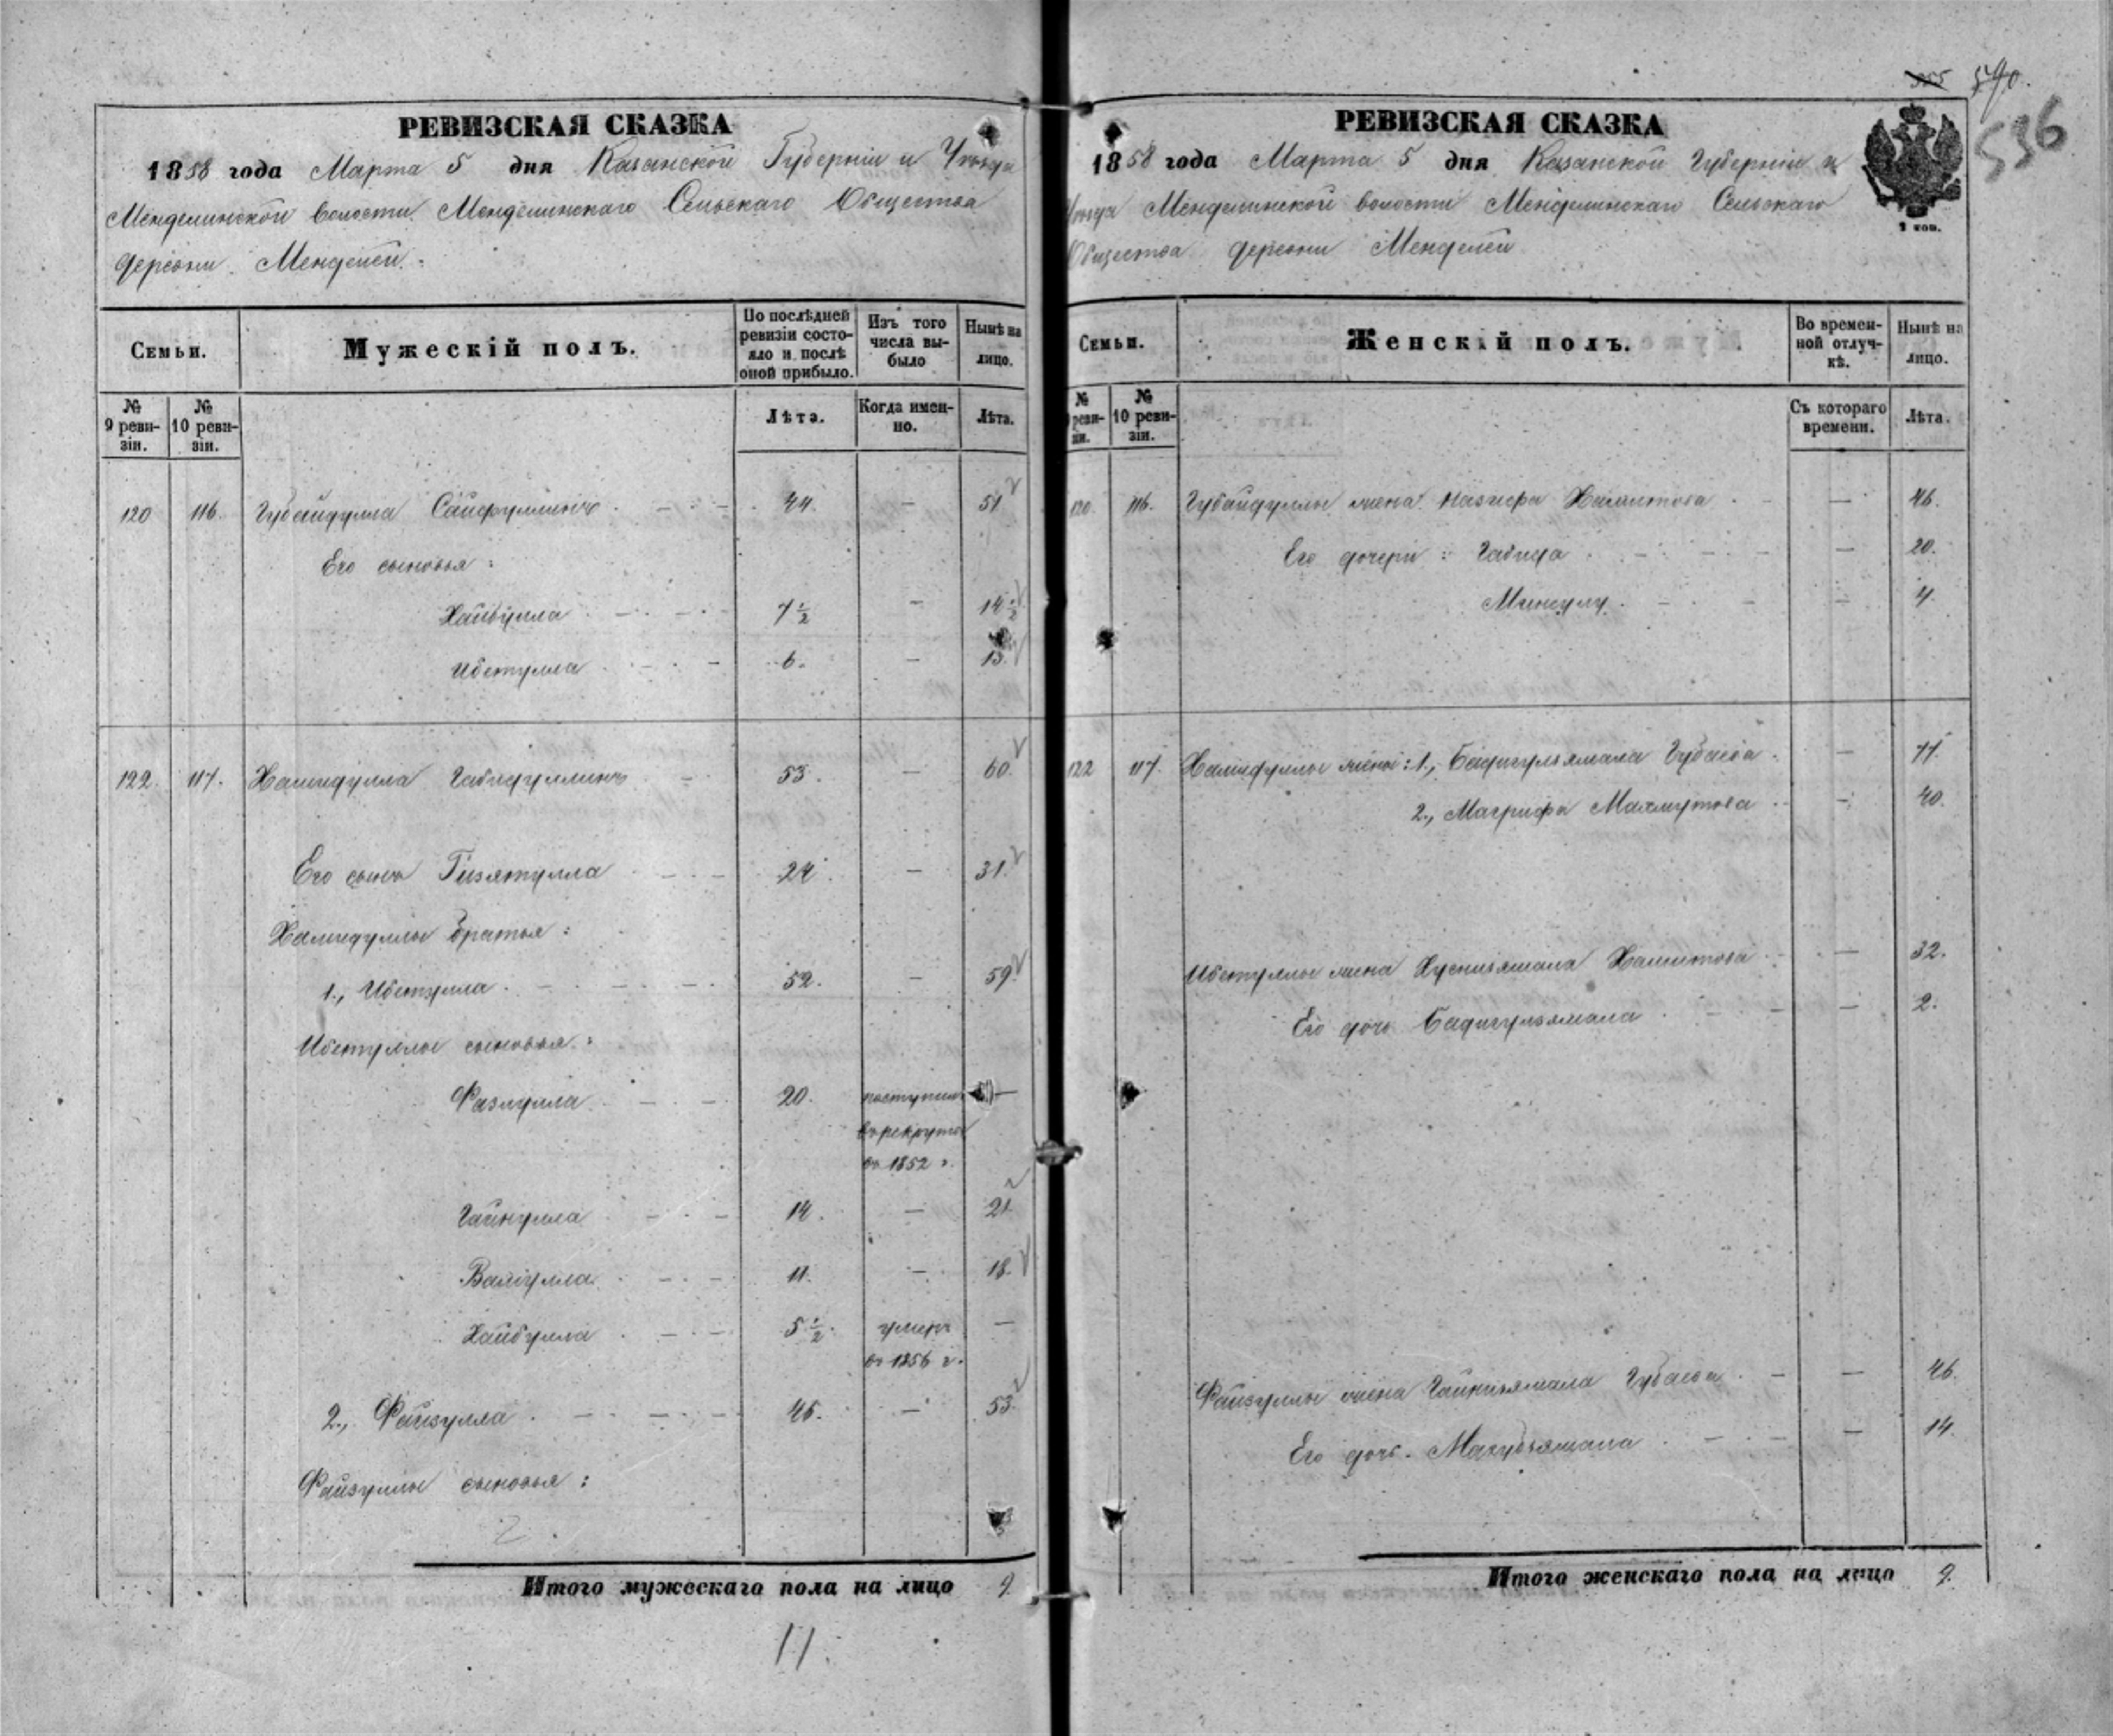 РЕВИЗСКАЯ СКАЗКА
1858 года Марта 5 дня Казанской Губерніи и Уѣзда
Менделинской волости Менделинскаго Сельскаго Общества
деревни Менделей.
Семьи.
Мужескій полъ.
По послѣдней ревизіи состо-
яло и послѣ оной прибыло.
Изъ того числа вы-
было
Нынѣ на лицо.
№ 9 реви-
зіи.
№ 10 реви-
зіи.
Лѣта.
Когда имен-
но.
Лѣта.
120 116. Губайдулла Сайфуллинъ 44. — 51
Его сыновья:
Хайбулла 7 1/2 — 14 1/2
Ибетулла 6. — 13.
122. 117. Хамидулла Габидуллинъ 53. — 60.
Его сынъ Гизятулла 24. — 31.
Хамидуллы братья:
1., Ибетулла 52. — 59.
Ибетуллы сыновья:
Фазлулла 20. поступилъ —
въ рекруты
въ 1852 г.
Гайнулла 14. — 21.
Валіулла 11. — 18.
Хайбулла 5 1/2. умеръ —
въ 1856 г.
2., Файзулла 46. — 53.
Файзуллы сыновья:
2
Итого мужескаго пола на лицо 9
11.
555 540.
536
РЕВИЗСКАЯ СКАЗКА
1858 года Марта 5 дня Казанской Губерніи и
Уѣзда Менделинской волости Менделинскаго Сельскаго
Общества деревни Менделей
1 коп.
Семьи.
Женскій полъ.
Во времен-
ной отлуч-
кѣ.
Нынѣ на лицо.
№ 9 реви-
зіи.
№ 10 реви-
зіи.
Съ котораго времени.
Лѣта.
120. 116. Губайдуллы жена Назифа Хамитова — 46.
Его дочери: Габида — 20.
Мингулу — 4.
122 117. Хамидуллы жены: 1., Бадигульямала Губаева —
2., Магрифа Махмутова — 40.
Ибетуллы жена Хуснизямала Хамитова — 32.
Его дочь Бадигульямала — 2.
Файзуллы жена Гайнизямала Губаева — 46.
Его дочь Магубзямала — 14.
Итого женскаго пола на лицо 9.